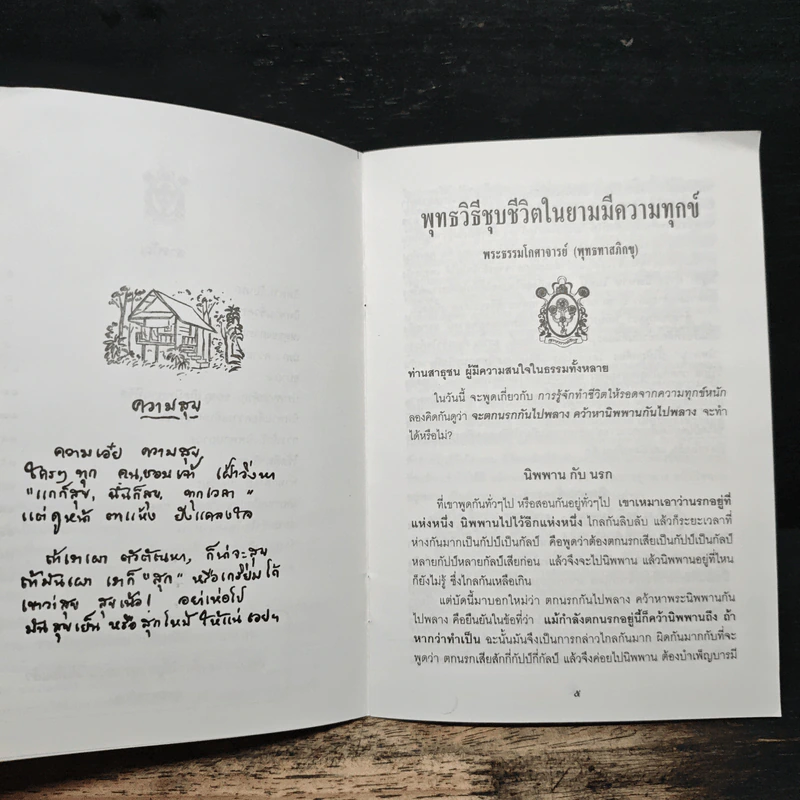 ความสุข
ความเอ๋ย ความสุข
ใครๆ ทุก คน, ชอบเจ้า เฝ้าวิ่งหา
"แกก็สุข, ฉันก็สุข, ทุกเวลา"
แต่ดูหน้า ตาแห้ง ยังแคลงใจ
ถ้าเราเผา ตัวตัณหา, ก็น่าจะสุข
ถ้ามันเผา เราก็ "สุก" หรือเกรียมได้
เขาว่าสุข สุขเน้อ! อย่าเห่อไป
มันสุขเย็น หรือสุกไหม้ ให้แน่เอยฯ
พุทธวิธีชุบชีวิตในยามมีความทุกข์
พระธรรมโกศาจารย์ (พุทธทาสภิกขุ)
ท่านสาธุชน ผู้มีความสนใจในธรรมทั้งหลาย
ในวันนี้ จะพูดเกี่ยวกับ การรู้จักทำชีวิตให้รอดจากความทุกข์หนัก
ลองคิดกันดูว่า จะตกนรกกันไปพลาง คว้าหานิพพานกันไปพลาง จะทำ
ได้หรือไม่?
นิพพาน กับ นรก
ที่เขาพูดกันทั่วๆไป หรือสอนกันอยู่ทั่วๆไป เขาเหมาเอาว่านรกอยู่ที่
แห่งหนึ่ง นิพพานไปไว้อีกแห่งหนึ่ง ไกลกันลิบลับ แล้วก็ระยะเวลาที่
ห่างกันมากเป็นกัปป์เป็นกัลป์ คือพูดว่าต้องตกนรกเสียเป็นกัปป์เป็นกัลป์
หลายกัปป์หลายกัลป์เสียก่อน แล้วจึงจะไปนิพพาน แล้วนิพพานอยู่ที่ไหน
ก็ยังไม่รู้ ซึ่งไกลกันเหลือเกิน
แต่บัดนี้มาบอกใหม่ว่า ตกนรกกันไปพลาง คว้าหาพระนิพพานกัน
ไปพลาง คือยืนยันในข้อที่ว่า แม้กำลังตกนรกอยู่นี้ก็คว้านิพพานถึง ถ้า
หากว่าทำเป็น ฉะนั้นมันจึงเป็นการกล่าวไกลกันมาก ผิดกันมากกับที่จะ
พูดว่า ตกนรกเสียสักกี่กัปป์กี่กัลป์ แล้วจึงค่อยไปนิพพาน ต้องบำเพ็ญบารมี
๕